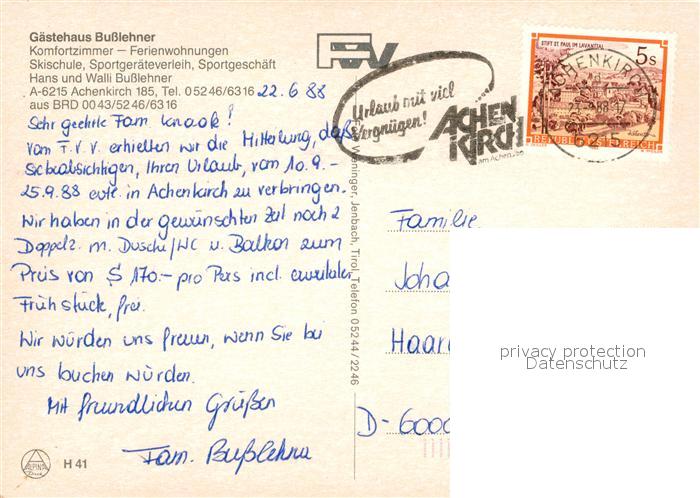 Gästehaus Bußlehner
Komfortzimmer – Ferienwohnungen
Skischule, Sportgeräteverleih, Sportgeschäft
Hans und Walli Bußlehner
A-6215 Achenkirch 185, Tel. 05246/6316
aus BRD 0043/5246/6316
22.6 88
Sehr geehrte Fam. Knaak!
Vom F.V.V. erhielten wir die Mitteilung, daß
Sie beabsichtigen, Ihren Urlaub, vom 10.9.-
25.9.88 evtl. in Achenkirch zu verbringen.
Wir haben in der gewünschten Zeit noch 2
Doppelz. m. Dusche/WC u. Balkon zum
Preis von S 170.- pro Pers incl.
Frühstück, frei.
Wir würden uns freuen, wenn Sie bei
uns buchen würden.
Mit freundlichen Grüßen
Fam. Bußlehner
ALPINA
H 41
Jenbach, Tirol, Telefon 05244/2246
Urlaub mit viel
Vergnügen!
ACHEN
KIRCH
am Achensee
STIFT ST. PAUL IM LAVANTTAL
5s
REPUBLIK ÖSTERREICH
ACHENKIRCH
6215
Familie
Joha
Haar
D-6000
privacy protection
Datenschutz